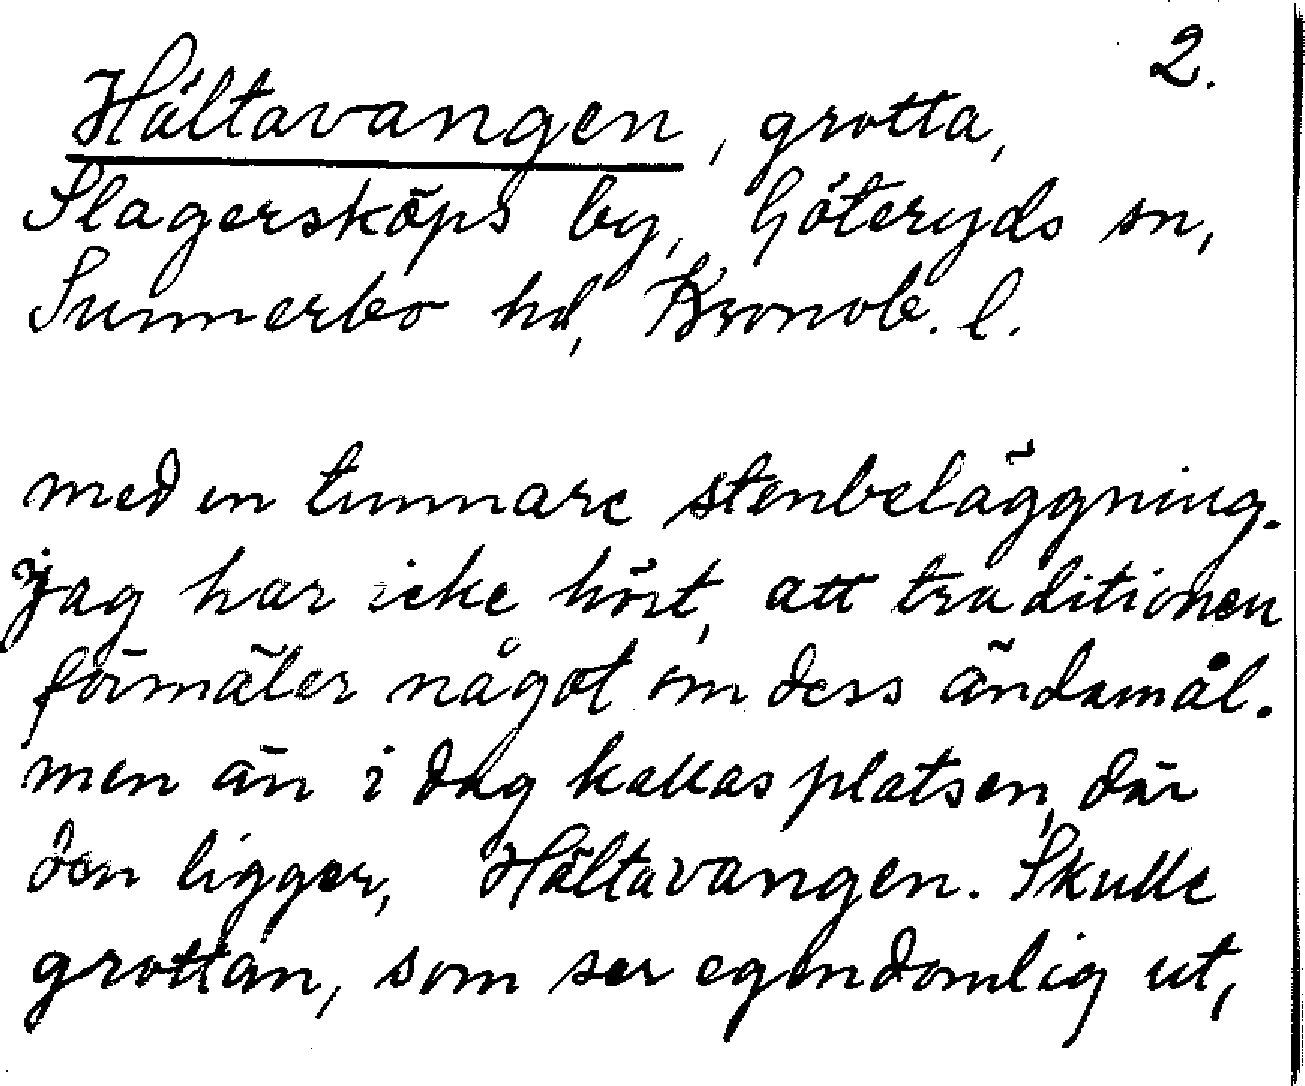 2.
Hältavangen, grotta,
Slagersköps by, Göteryds sn,
Sunnerbo hd, Kronob. l.
med en tunnare stenbeläggning.
Jag har icke hört, att traditionen
förmäler något om dess ändamål.
men än i dag kallas platsen, där
den ligger, Hältavangen. Skulle
grottan, som ser egendomlig ut,